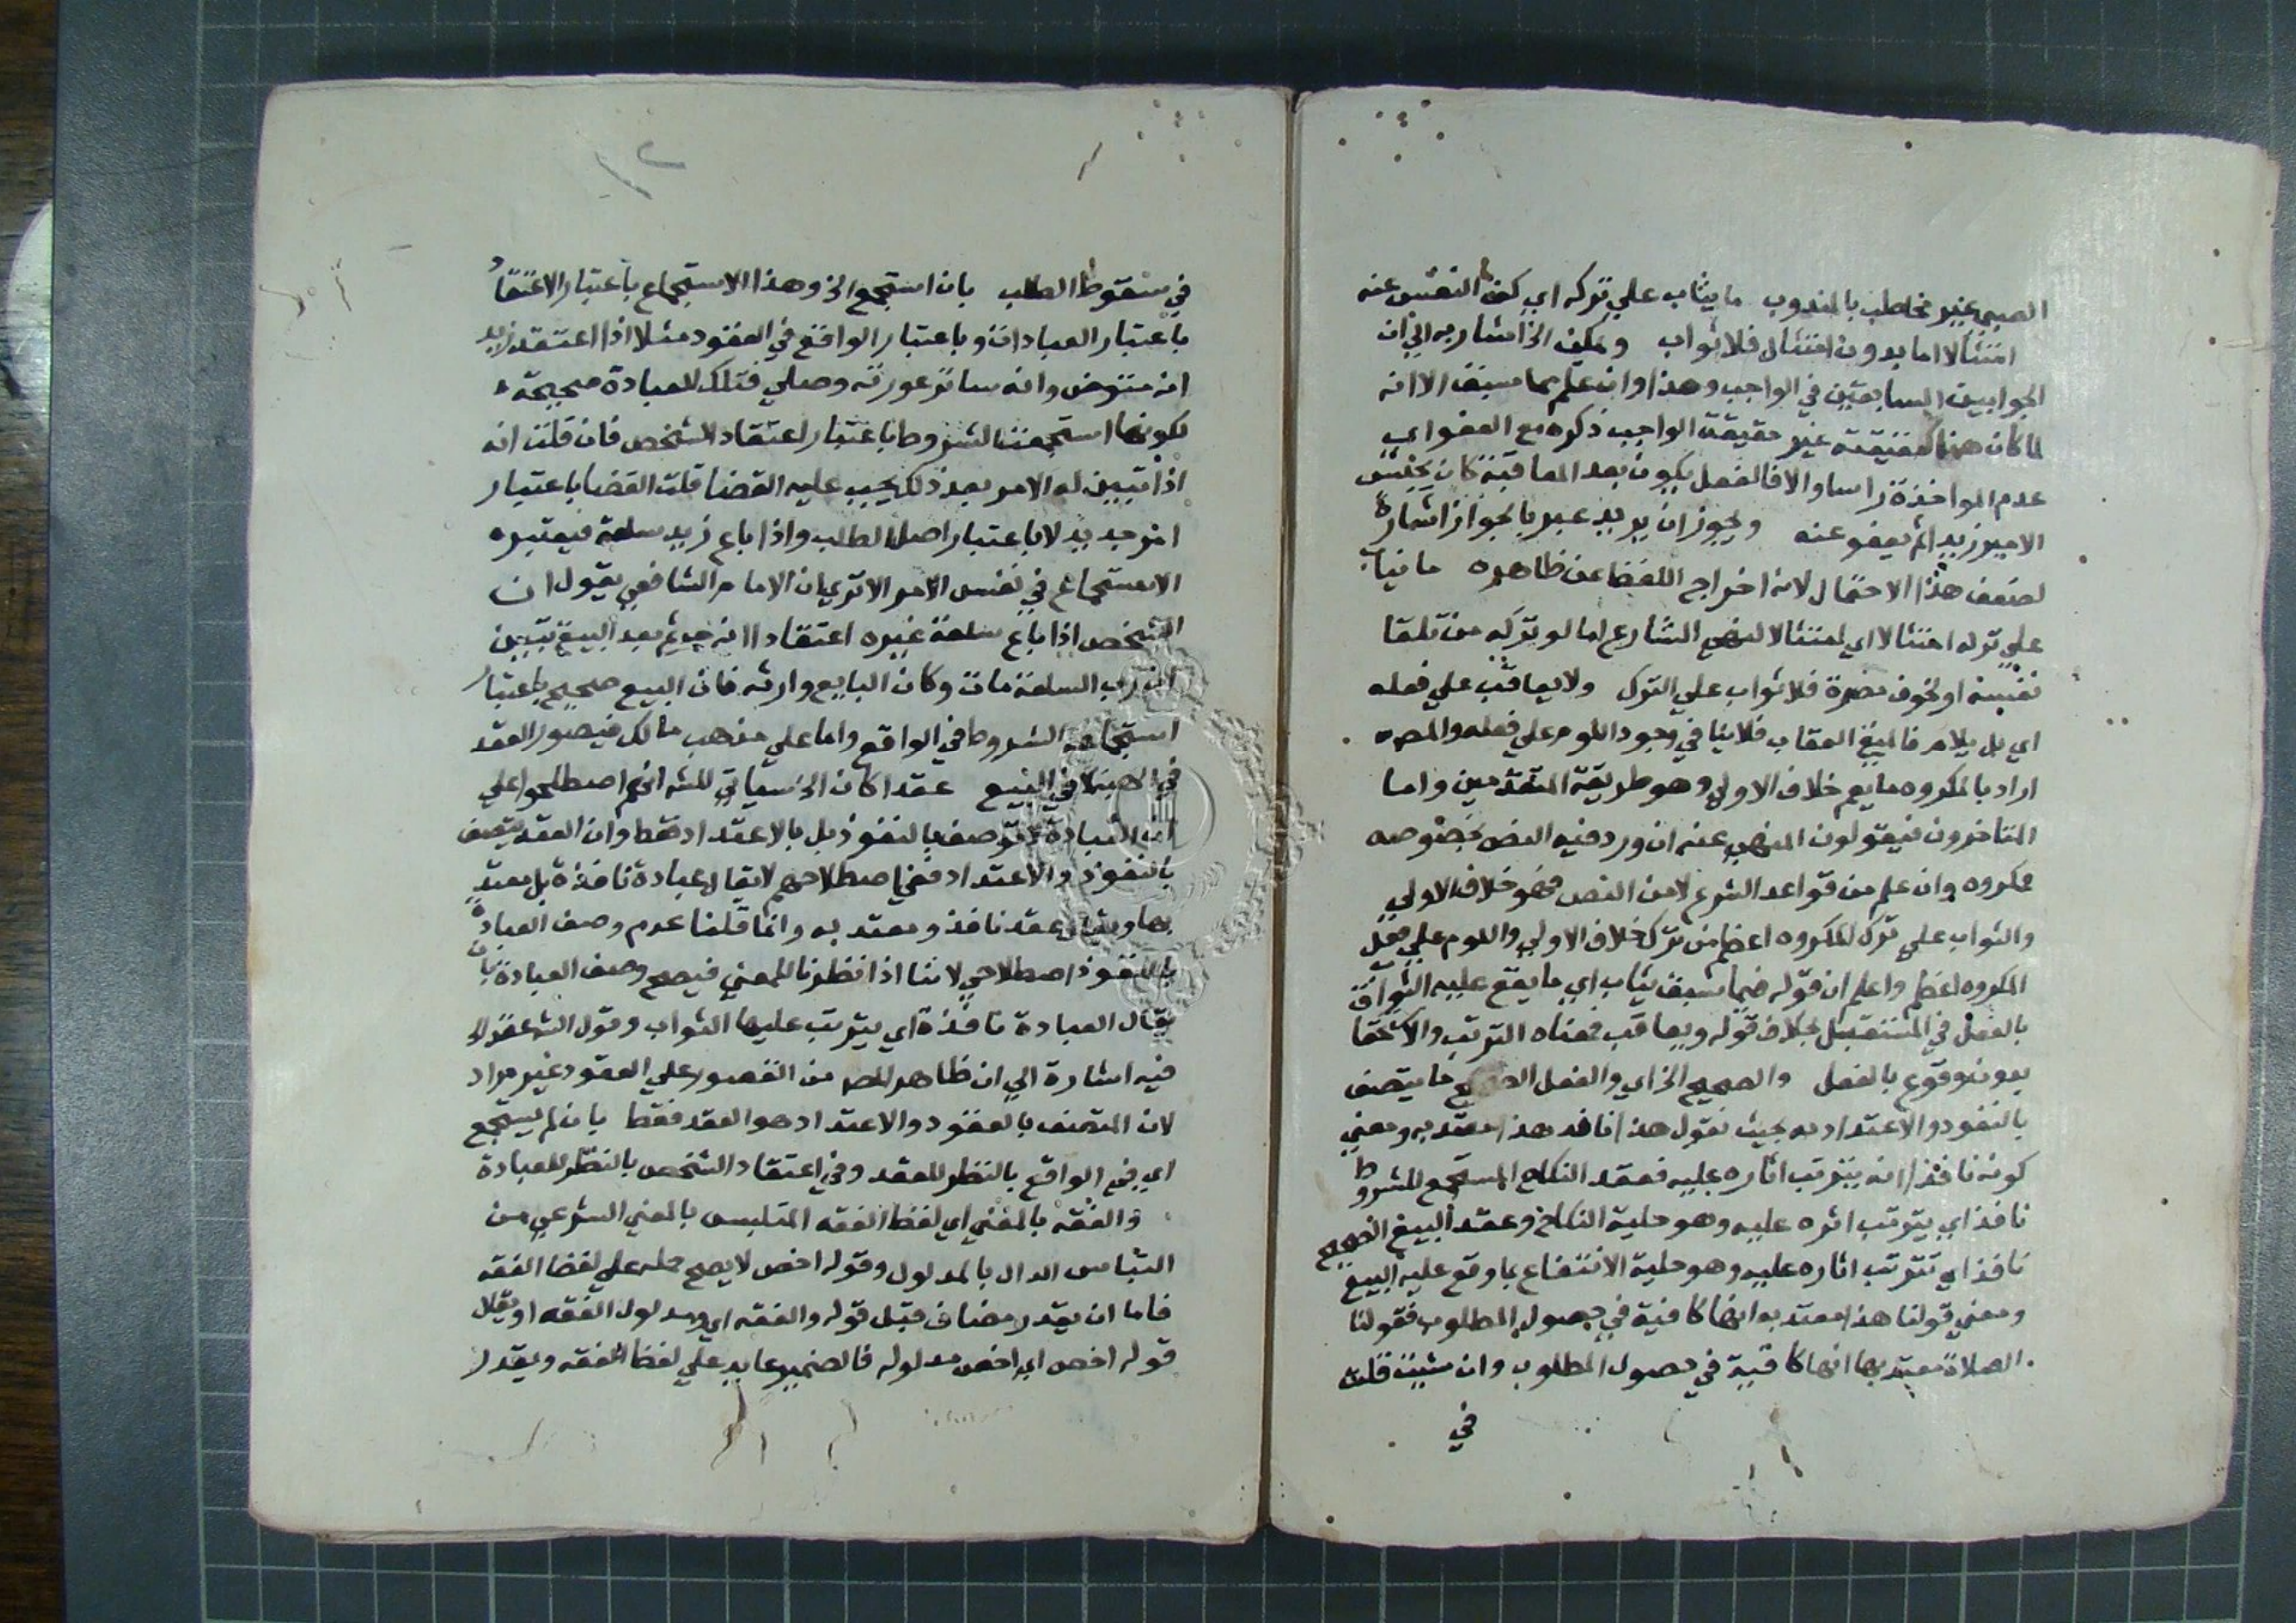 الصبي غير مخاطب بالمندوب ما يثاب علي تركه اي كف النفس عنه
امتثالا اما بدون امتثال فلا ثواب ويمكن الخ اشار به الي ان
الجوابين السابقين في الواجب وهذا وان علم مما سبق الا انه
لما كان هنا حقيقته غير حقيقة الواجب ذكره مع العفو اي
عدم المواخذة راسا والا فالفعل يكون بعد المعاقبة كان يحبس
الامير زيد اثم يعفو عنه ويجوز ان يريد عبر بالجواز اشارة
لضعف هذا الاحتمال لانه اخراج اللفظ عن ظاهره ما يثاب
علي تركه امتثالا اي امتثالا لنهي الشارع اما لو تركه من تلقا
نفسه او لخوف مضرة فلا ثواب علي الترك ولا يعاقب علي فعله
اي بل يلام فالمنفي العقاب فلا ينافي وجود اللوم علي فعله والمصـ
اراد بالمكروه ما يعم خلاف الاولي وهو طريقة المتقدمين واما
المتاخرون فيقولون المنهي عنه ان ورد فيه النص بخصوصه
مكروه وان علم من قواعد الشرع لا من النص فهو خلاف الاولي
والثواب علي ترك المكروه اعظم من ترك خلاف الاولي واللوم علي فعل
المكروه اعظم واعلم ان قوله فيما سبق يثاب اي ما يقع عليه الثواب
بالفعل في المستقبل بخلاف قوله ويعاقب فمعناه الترتب والاستحقا
بدون وقوع بالفعل والصحيح الخ اي والفعل الصحيح ما يتصف
بالنفوذ والاعتداد به بحيث نقول هذا نافد هذا معتد به ومعني
كونه نافذا انه يترتب اثاره عليه فعقد النكاح المستجمع للشروط
نافذ اي يترتب اثره عليه وهو حلية النكاح وعقد البيع الصحيح
نافذ اي تترتب اثاره عليه وهو حلية الانتفاع بما وقع عليه البيع
ومعني قولنا هذا معتد به انها كافية في حصول المطلوب فقولنا
الصلاة معتد بها انها كافية في حصول المطلوب وان شيت قلت
في
١٢
في سقوط الطلب بان استجمع الخ وهذا الاستجماع باعتبار الاعتقاد
باعتبار العبادات وباعتبار الواقع في العقود مثلا اذا اعتقد زيد
انه متوض وانه ساتر عورته وصلي فتلك العبادة صحيحة
لكونها استجمعت الشروط باعتبار اعتقاد الشخص فان قلت انه
اذا تبين له الامر بعد ذلك يجب عليه القضا قلت القضا باعتبار
امر جديد لا باعتبار اصل الطلب واذا باع زيد سلعة فيعتبره
الاستجماع في نفس الامر الا تري ان الامام الشافعي يقول ان
الشخص اذا باع سلعة غيره اعتقادا انه ثم بعد البيع تبين
ان رب السلعة مات وكان البايع وارثه فان البيع صحيح باعتبار
استجماعه الشروط في الواقع واما علي مذهب مالك فيصور العقد
في الهبة لا في البيع عقدا كان الخ سياتي للشه انهم اصطلحوا علي
ان العبادة توصف بالنفوذ بل بالاعتداد فقط وان العقد يتصف
بالنفوذ والاعتداد ففي اصطلاحهم لا يقال عبادة نافذة بل معتد
بها ويقال عقد نافذ ومعتد به وانما قلنا عدم وصف العبادة
بالنفوذ اصطلاحي لاننا اذا نظرنا للمعني فيصح وصف العبادة بان
يقال العبادة نافذة اي يترتب عليها الثواب وقول الشه عقدا
فيه اشارة الي ان ظاهر المصـ من القصور علي العقود غير مراد
لان المتصف بالعقود والاعتداد هو العقد فقط بان لم يستجمع
اي في الواقع بالنظر للعقد وفي اعتقاد الشخص بالنظر للعبادة
والفقه بالمعني اي لفظ الفقه المتلبس بالمعني الشرعي من
التباس الدال بالمدلول وقوله اخص لا يصح حمله علي لفظ الفقه
فاما ان يقدر مضاف قبل قوله والفقه اي ومدلول الفقه او يقال
قوله اخص اي اخص مدلوله فالضمير عايد علي لفظ الفقه ويقدر